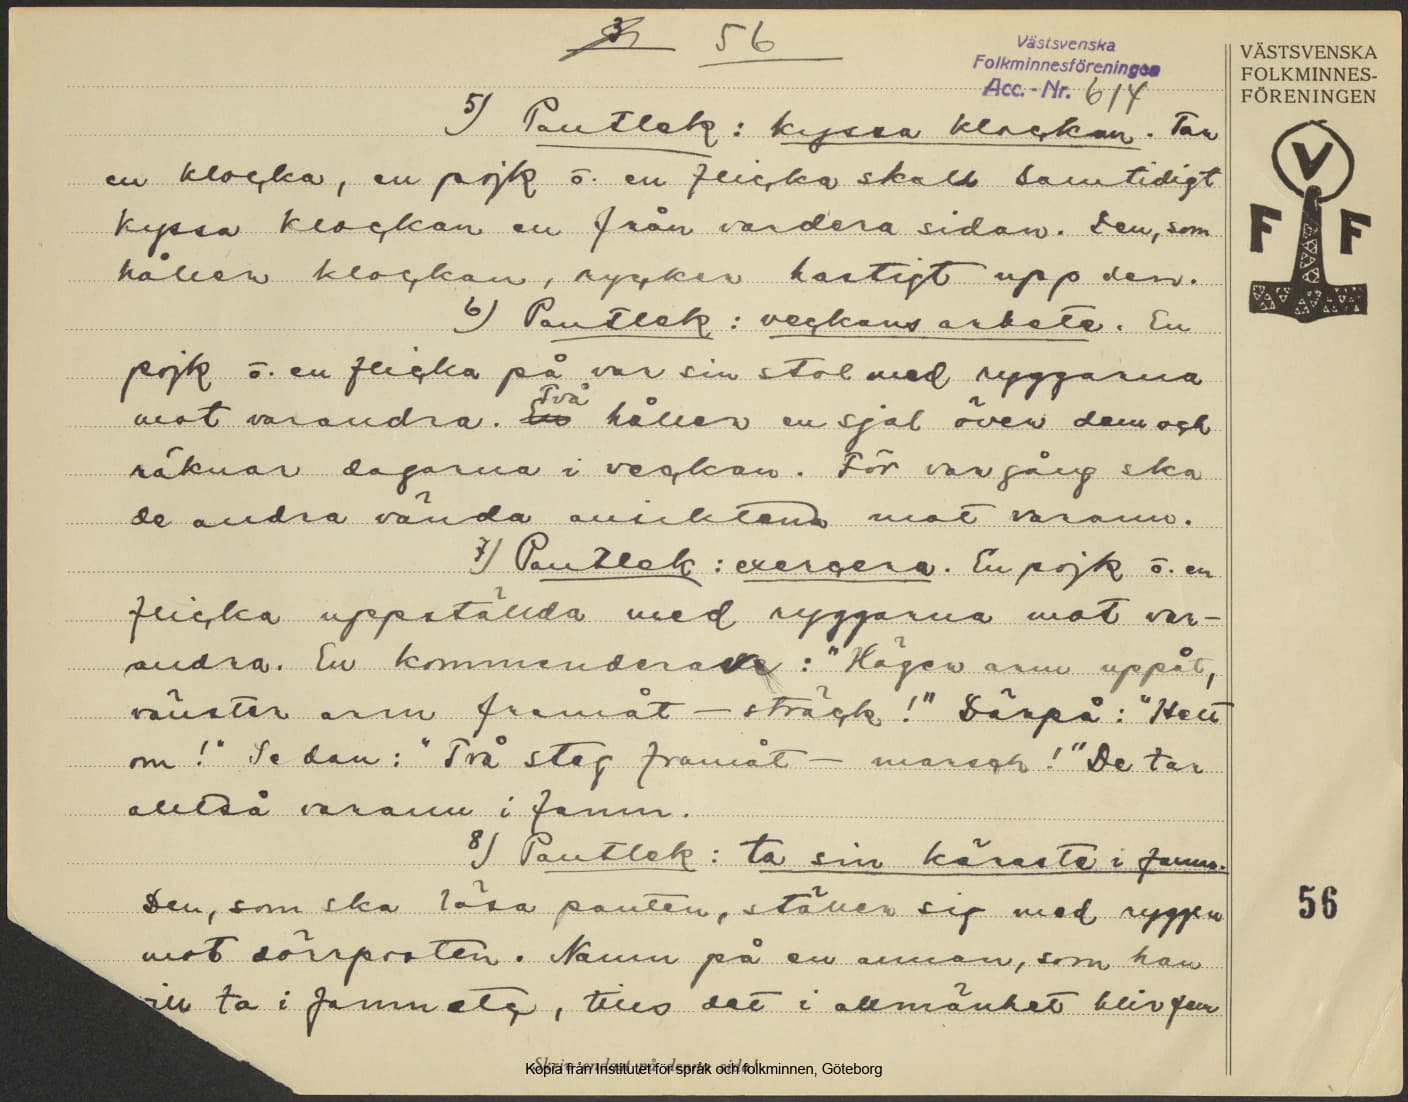 56
Västsvenska
Folkminnesföreningen
Acc.-Nr. 614
VÄSTSVENSKA
FOLKMINNES-
FÖRENINGEN
V
F F
5) Pantlek: kyssa klockan. Tar
en klocka, en pojk o. en flicka skall samtidigt
kyssa klockan en från vardera sidan. Den, som
håller klockan, rycker hastigt upp den.
6) Pantlek: veckans arbete. En
pojk o. en flicka på var sin stol med ryggarna
mot varandra. Två håller en sjal över dem och
räknar dagarna i veckan. För var gång ska
de andra vända ansiktena mot varann.
7) Pantlek: exercera. En pojk o. en
flicka uppställda med ryggarna mot var-
andra. En kommenderar: "Höger arm uppåt,
vänster arm framåt – sträck!" Därpå: "Helt
om!" Sedan: "Två steg framåt – marsch!" De tar
alltså varann i famn.
8) Pantlek: ta sin käraste i famn.
Den, som ska lösa panten, ställer sig med ryggen
mot dörrposten. Namn på en annan, som han
vill ta i famn etc, tills det i allmänhet blir fem
56
Skriv endast på denna sida!
Kopia från Institutet för språk och folkminnen, Göteborg